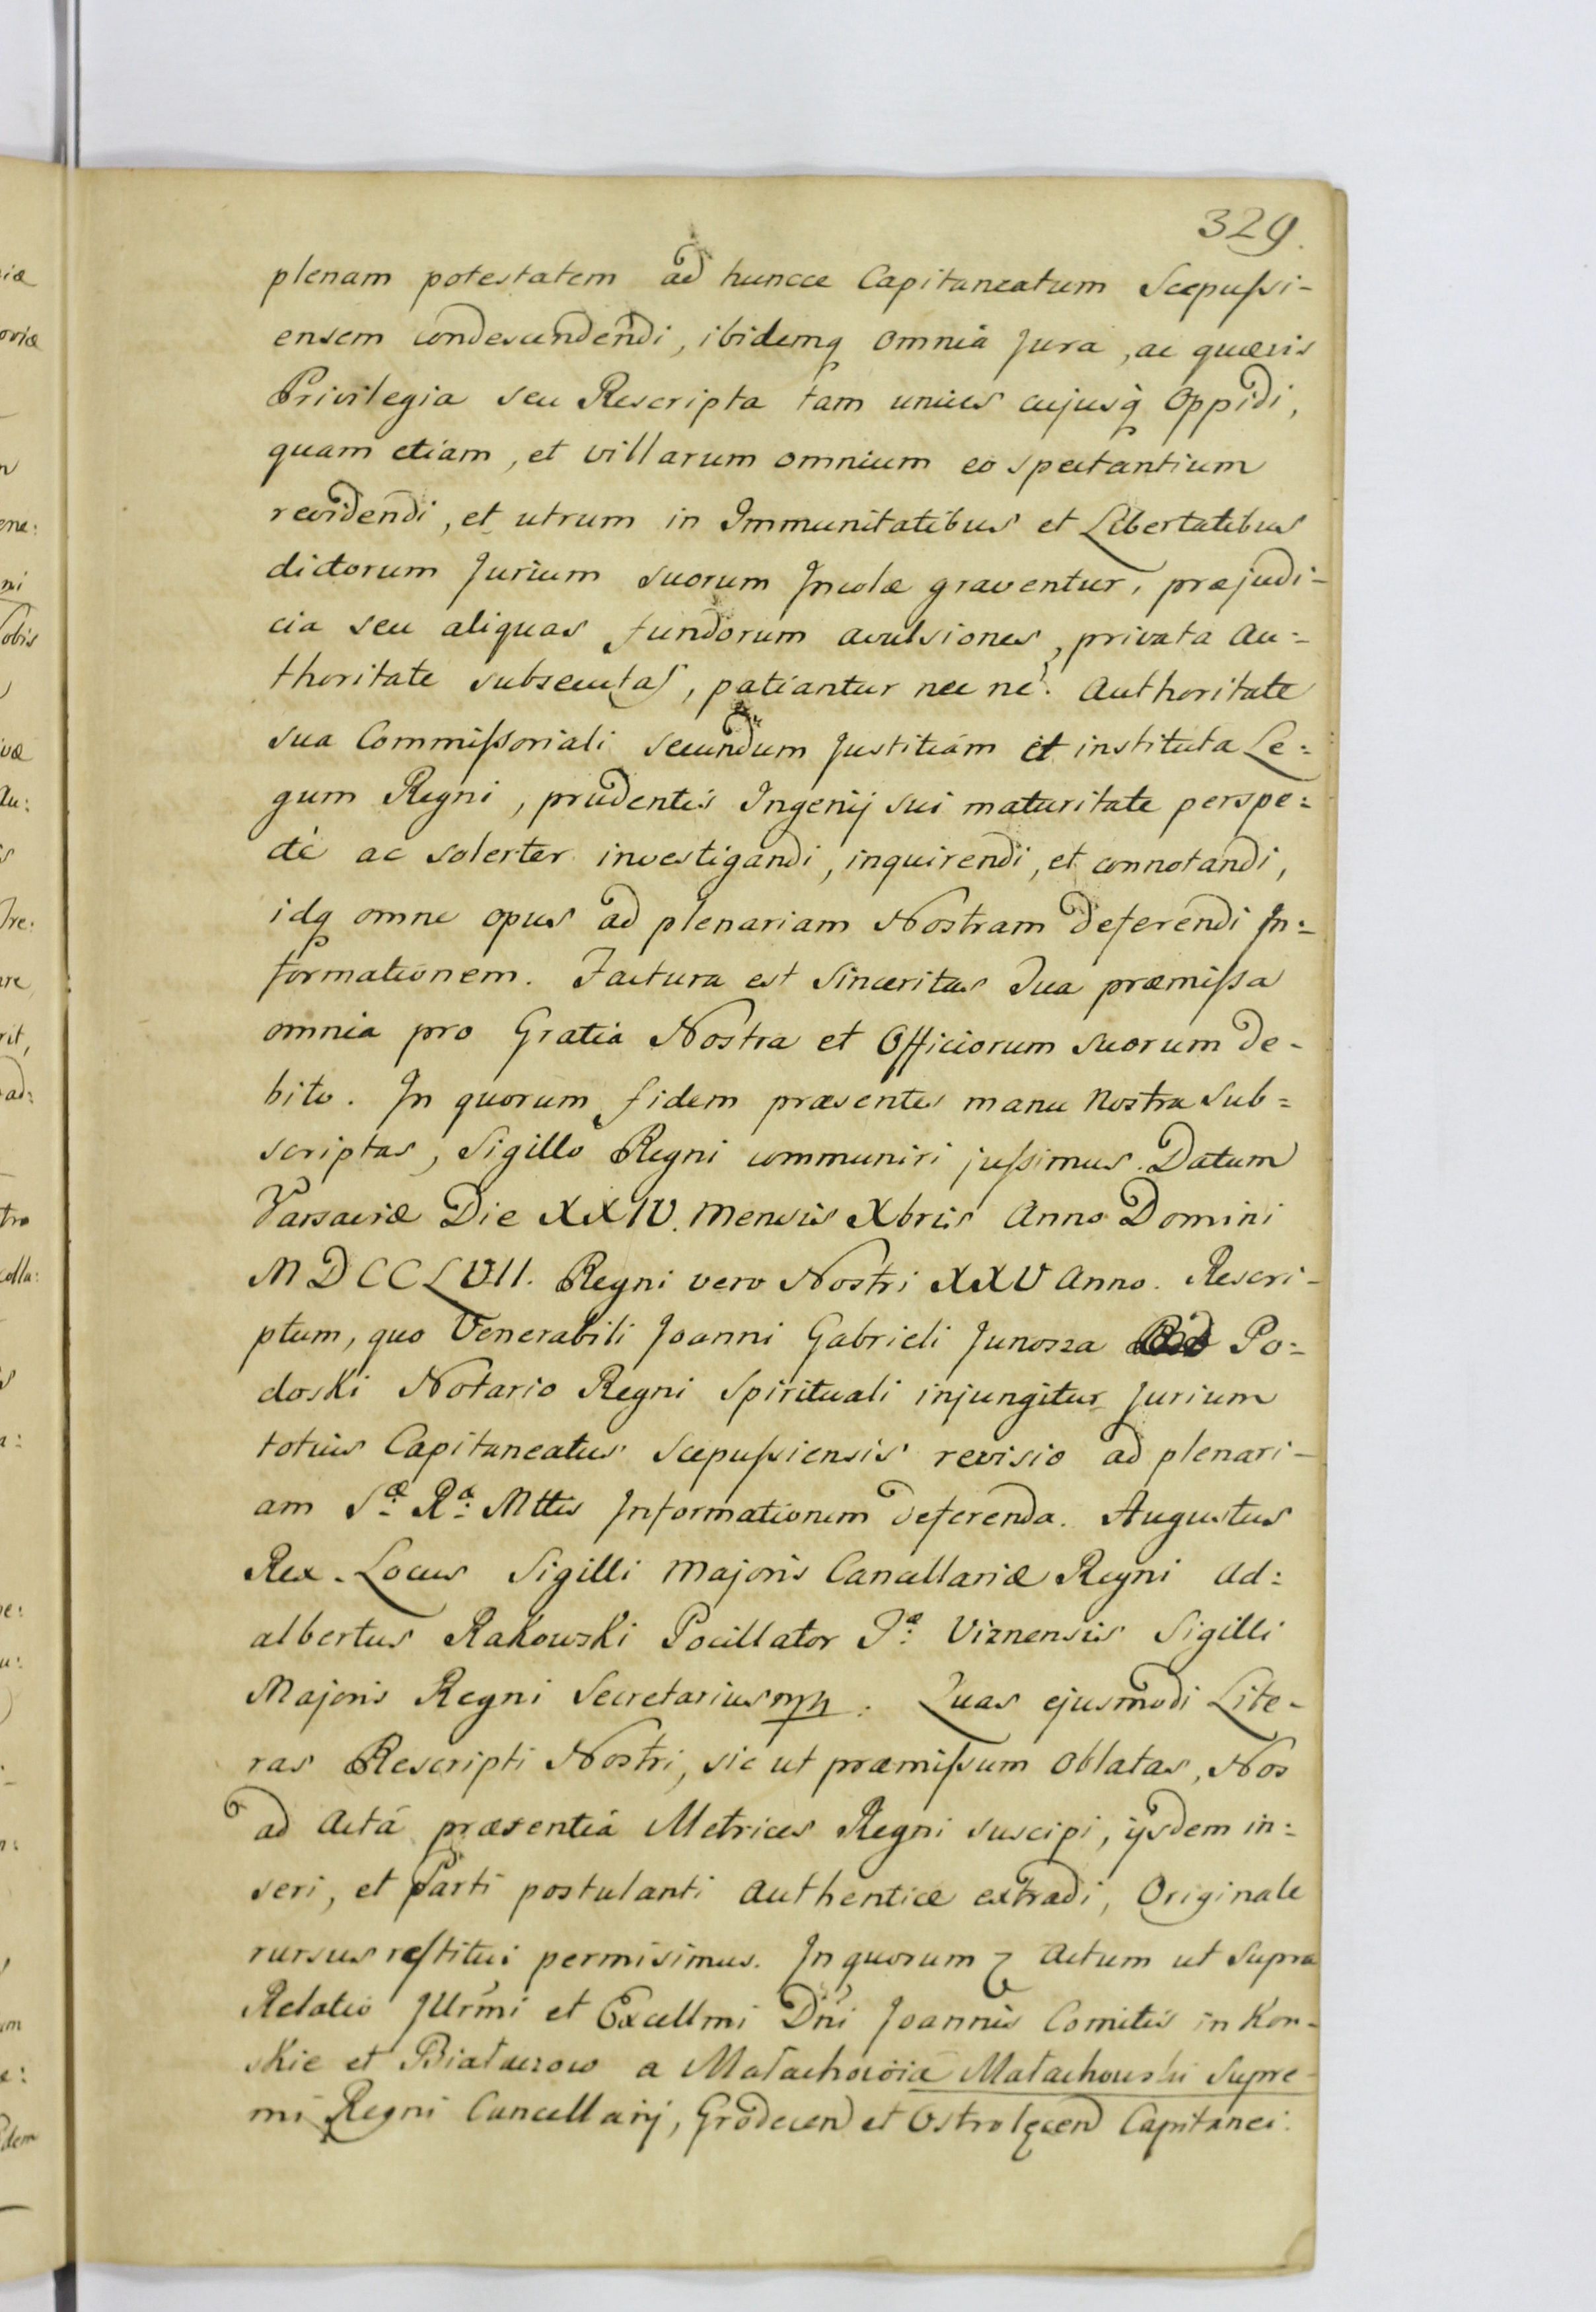 329.
plenam potestatem ad huncce Capitaneatum Scepuſsi-
ensem condescendendi, ibidemq omnia Jura, ac quævis
Privilegia seu Rescripta tam unius cujusq̀ Oppidi,
quam etiam, et villarum omnium eo spectantium
revidendi, et utrum in Immunitatibus et Libertatibus
dictorum Jurium suorum Incolæ graventur, præjudi-
cia seu aliquas fundorum avulsiones, privata Au:
thoritate subsecutas, patiantur nec nè? Authoritate
sua Commiſsoriali secundum Justitiam et instituta Le:
gum Regni, prudentis Ingenij sui maturitate perspe:
ctè ac solerter investigandi, inquirendi, et connotandi,
idq omne opus ad plenariam Nostram deferendi In:
formationem. Factura est Sinceritas Sua præmiſsa
omnia pro Gratia Nostra et Officiorum suorum de-
bito. In quorum fidem præsentes manu Nostra Sub=
scriptas, Sigillo Regni communiri juſsimus. Datum
Varsaviæ Die XXIV. Mensis Xbris Anno Domini
MDCCLVII. Regni vero Nostri XXV Anno. Rescri-
ptum, quo Venerabili Joanni Gabrieli Junosza Po:
doski Notario Regni Spirituali injungitur Jurium
totius Capitaneatus Scepuſsiensis revisio ad plenari-
am Sæ: Ræ: Mttis Informationem deferenda. Augustus
Rex. Locus Sigilli Majoris Cancellariæ Regni Ad:
albertus Rakowski Pocillator Tæ: Viznensis Sigilli
Majoris Regni Secretarius mp. Quas ejusmodi Lite-
ras Rescripti Nostri, sic ut præmiſsum oblatas, Nos
ad Actá præsentiá Metrices Regni suscipi, ijsdem in:
seri, et Parti postulanti authentice extradi, Originale
rursus reſtitui permisimus. In quorum Actum ut Supra
Relatio Jllrmi et Excellmi Dni Joannis Comitis in Kon-
skie et Białaczow a Małachowice Małachowski Supre-
mi Regni Cancellarij, Grodecen et Ostrolęcen Capitanei.